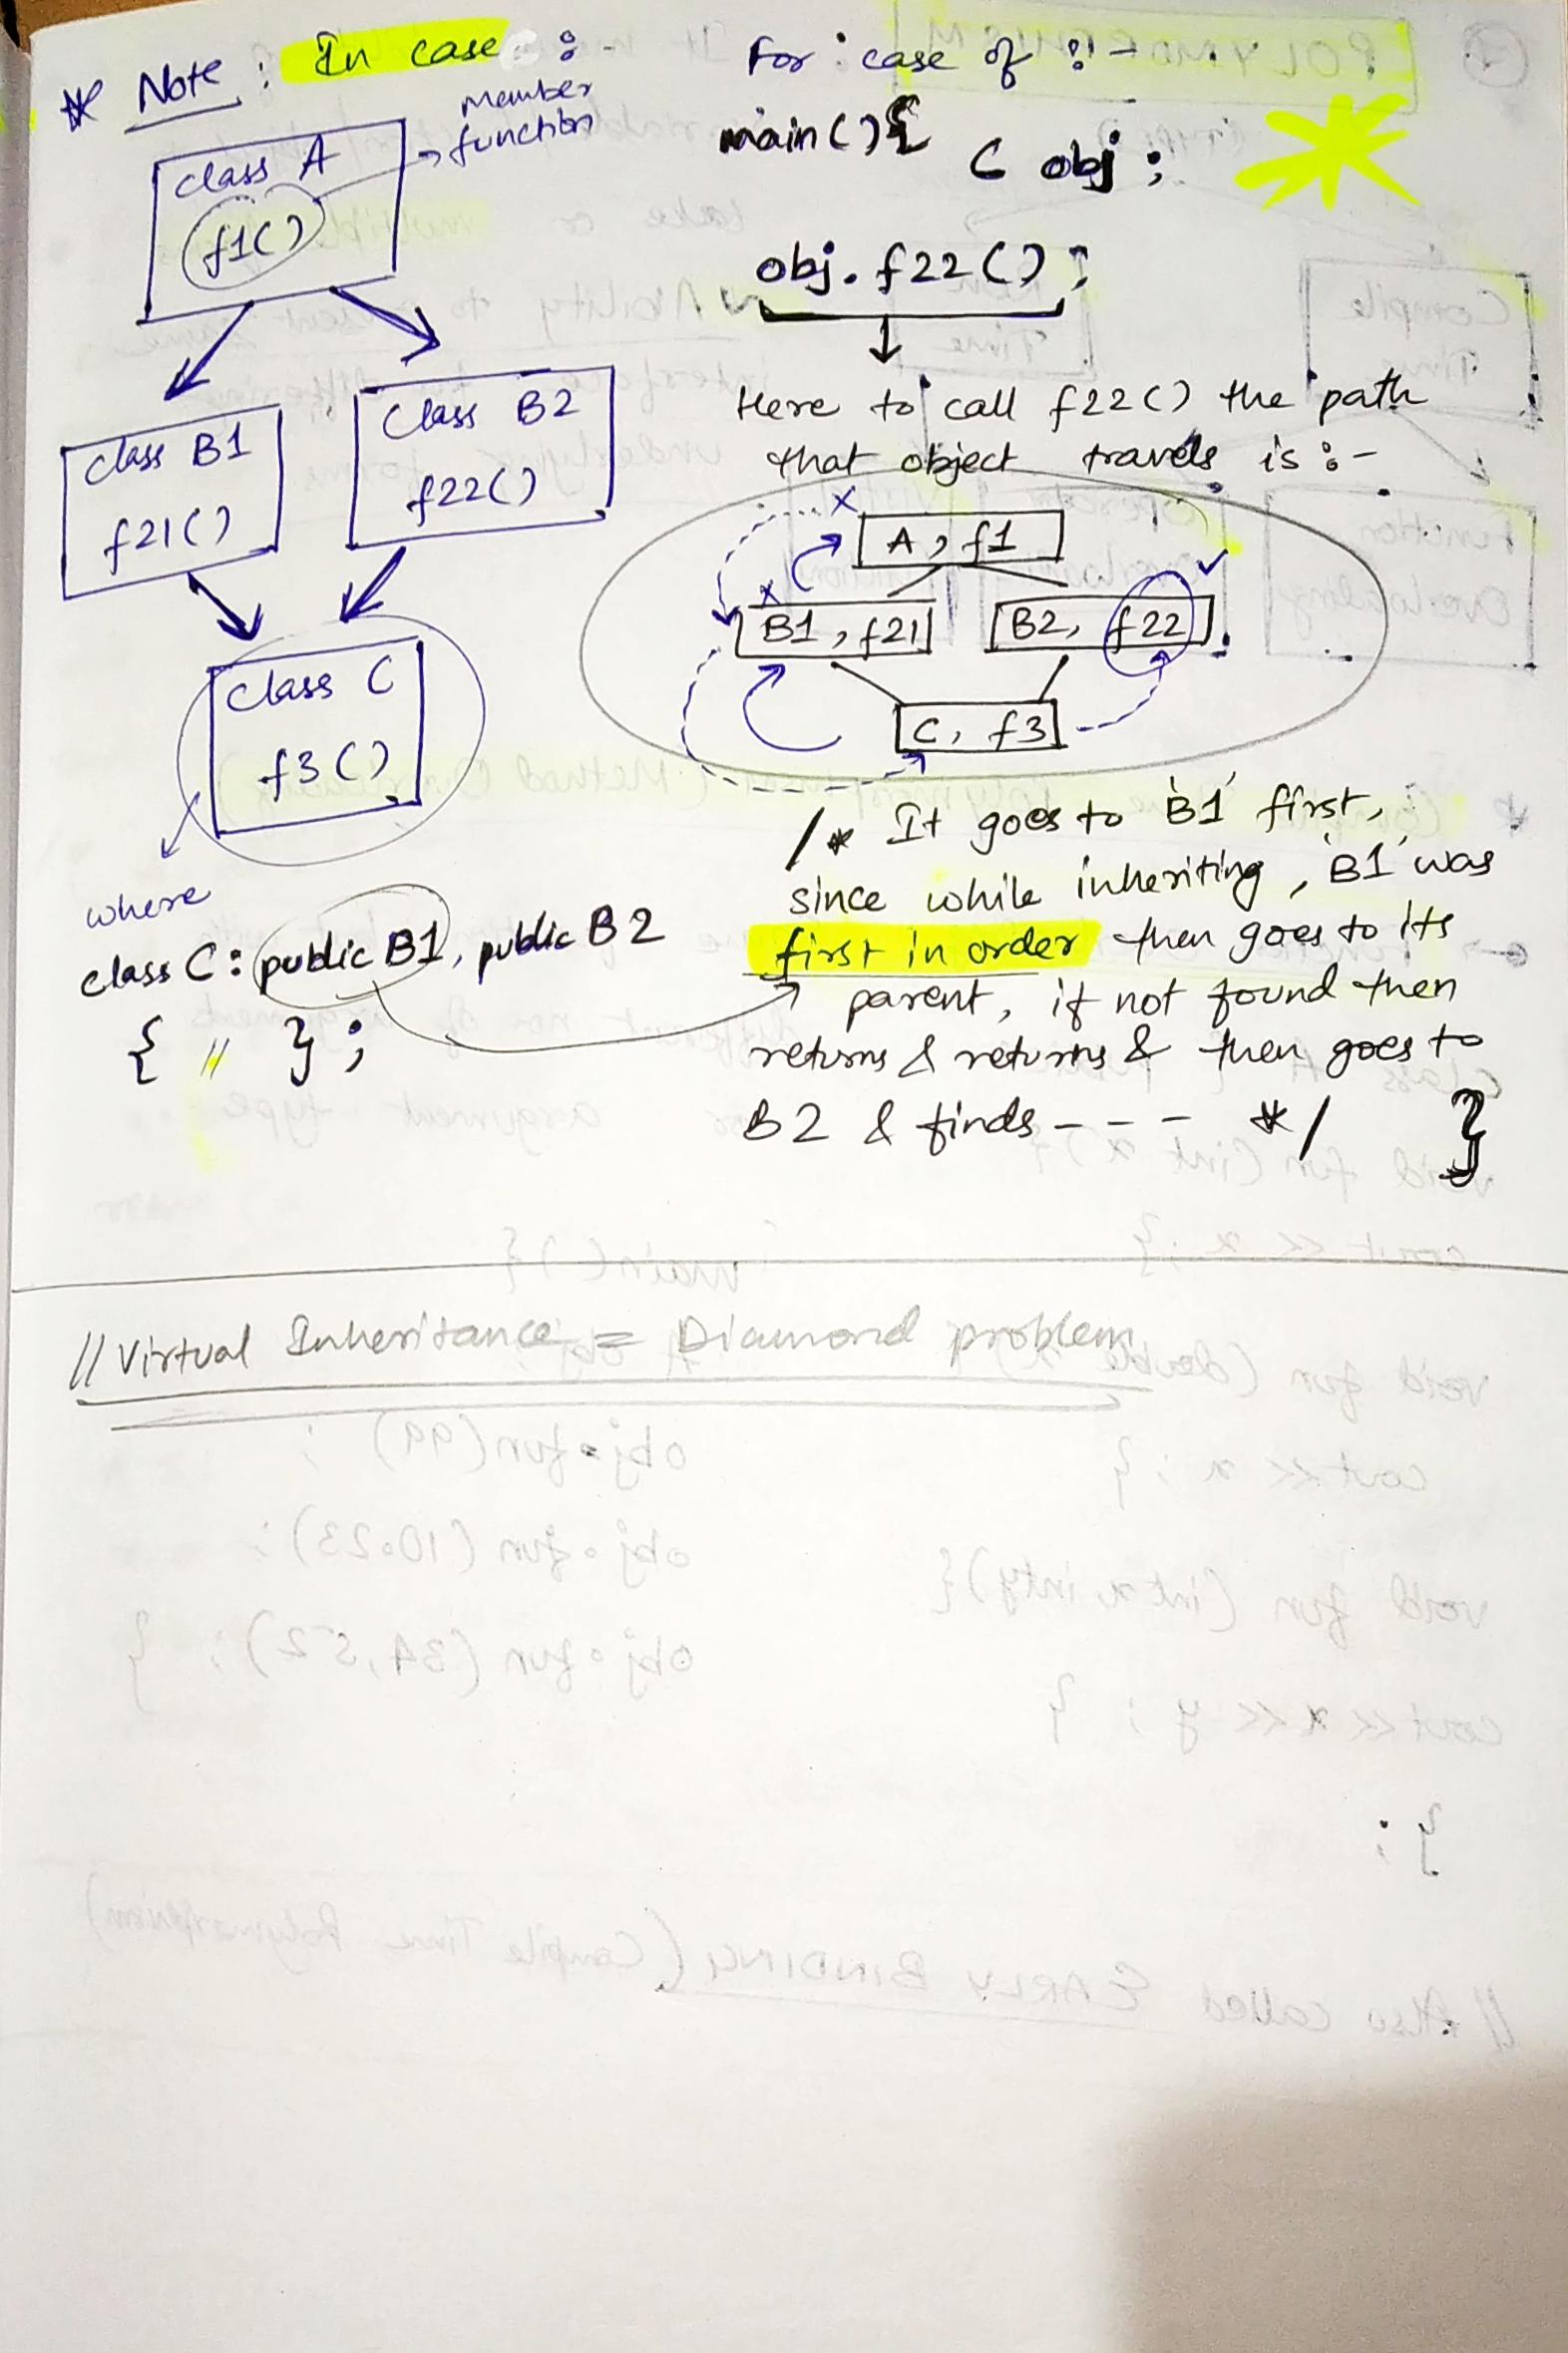 * Note : In case :-
member
function
class A
f1()
class B1
f21()
class B2
f22()
class C
f3()
where
class C : public B1, public B2
{ // } ;
For case of :-
main(){
C obj ;
obj.f22() ;
Here to call f22() the path
that object travels is :-
x
A, f1
x
B1, f21
B2, f22
C, f3
/* It goes to 'B1' first,
since while inheriting, 'B1' was
first in order then goes to its
parent, if not found then
returns & returns & then goes to
B2 & finds - - - */ }
// Virtual Inheritance = Diamond problem